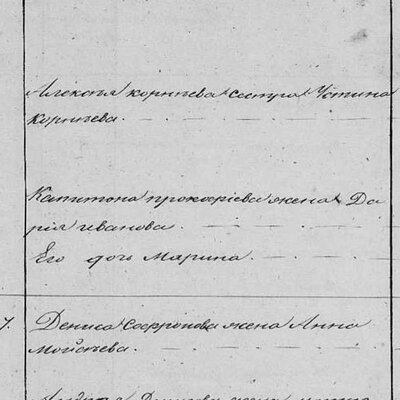 Алексѣя корнѣева сестра Устина
корнѣева.
Капитона прокофіева жена Да
рія иванова.
Его дочь Марина.
7. Дениса Софронова жена Анна
Моисѣева.
Денисова жена